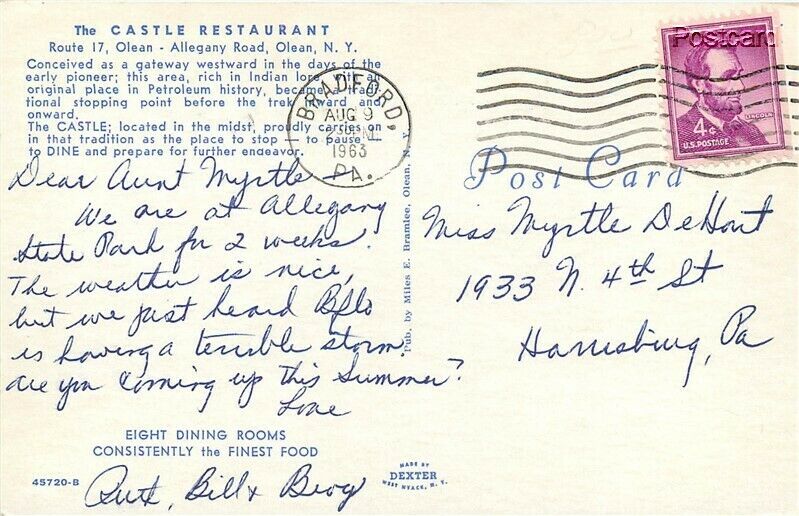 The CASTLE RESTAURANT
Route 17, Olean - Allegany Road, Olean, N. Y.
Conceived as a gateway westward in the days of the
early pioneer; this area, rich in Indian lore with an
original place in Petroleum history, became a tradi-
tional stopping point before the trek onward and
onward.
The CASTLE; located in the midst, proudly carries on
in that tradition as the place to stop — to pause
to DINE and prepare for further endeavor.
BRADFORD,
AUG 9
PM
1963
PA.
Postcard
LINCOLN
4¢
U.S. POSTAGE
Post Card
Dear Aunt Myrtle -
We are at Allegany
State Park for 2 weeks.
The weather is nice,
but we just heard Bflo
is having a terrible storm.
Are you coming up this Summer?
Love
Ruth, Bill &
Miss Myrtle DeHart
1933 N. 4th St
Harrisburg, Pa
Pub. by Miles E. Bramlee, Olean, N. Y.
EIGHT DINING ROOMS
CONSISTENTLY the FINEST FOOD
45720-B
MADE BY
DEXTER
WEST NYACK, N. Y.